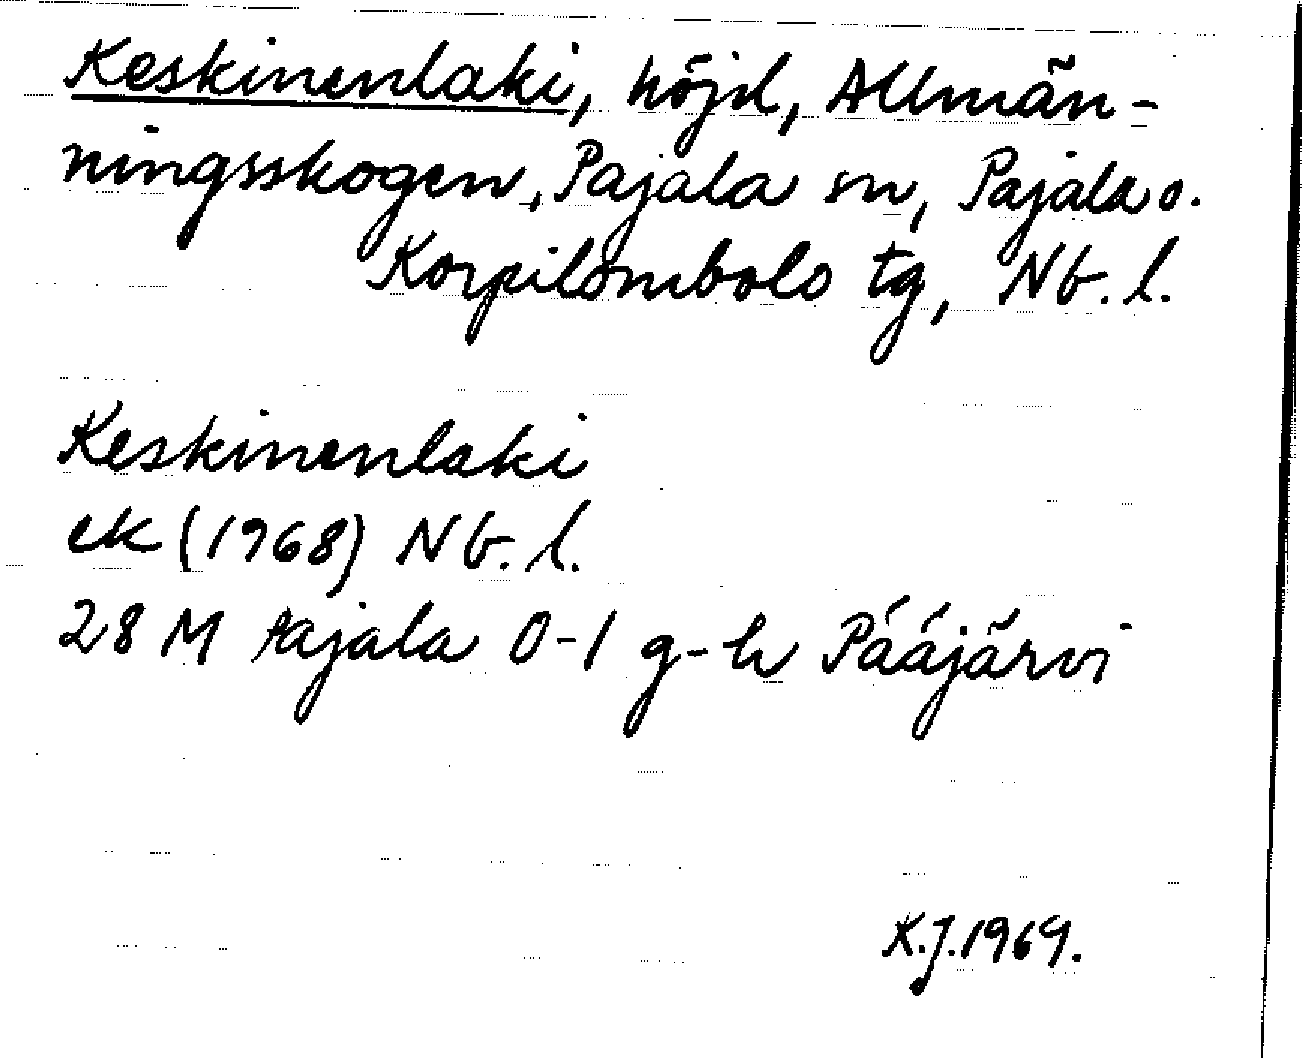 Keskinenlaki, höjd, Allmän-
ningsskogen, Pajala sn, Pajala o.
Korpilombolo tg, Nb. l.
Keskinenlaki
ek (1968) Nb. l.
28 M Pajala 0-1 g-h Pääjärvi
K.J. 1969.